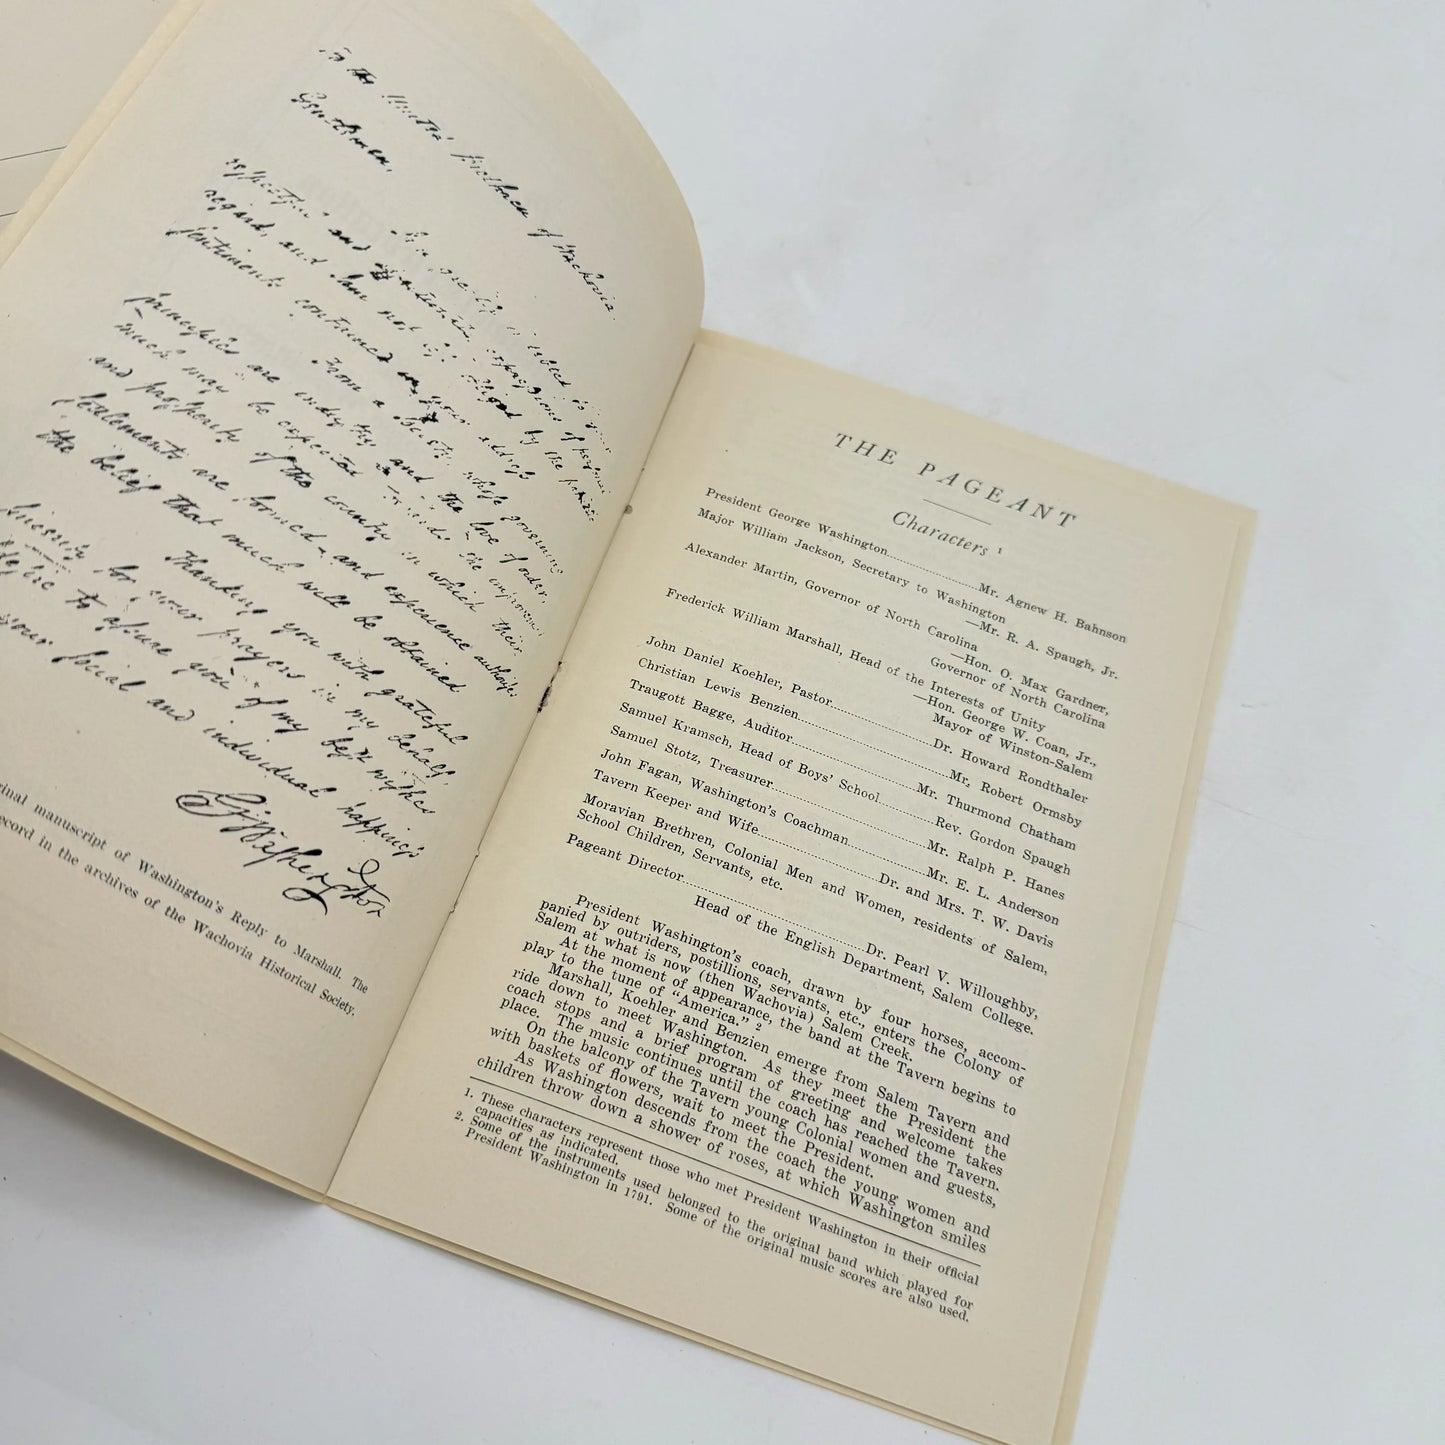 To the United Brethren of Wachovia.
Gentlemen,
I am greatly indebted to your
respectful and affectionate expressions of personal
regard, and I am not less obliged by the patriotic
sentiments contained in your address
From a Society, whose governing
principles are industry and the love of order,
much may be expected towards the improvement
and prosperity of the country in which their
settlements are formed – and experience authorizes
the belief that much will be obtained
Thanking you with grateful
sincerity for your prayers in my behalf,
I desire to assure you of my best wishes
your social and individual happiness
G. Washington
manuscript of Washington's Reply to Marshall. The
record in the archives of the Wachovia Historical Society.
THE PAGEANT
Characters 1
President George Washington........................Mr. Agnew H. Bahnson
Major William Jackson, Secretary to Washington
—Mr. R. A. Spaugh, Jr.
Alexander Martin, Governor of North Carolina
—Hon. O. Max Gardner,
Governor of North Carolina
Frederick William Marshall, Head of the Interests of Unity
—Hon. George W. Coan, Jr.,
Mayor of Winston-Salem
John Daniel Koehler, Pastor........................Dr. Howard Rondthaler
Christian Lewis Benzien........................Mr. Robert Ormsby
Traugott Bagge, Auditor........................Mr. Thurmond Chatham
Samuel Kramsch, Head of Boys' School........................Rev. Gordon Spaugh
Samuel Stotz, Treasurer........................Mr. Ralph P. Hanes
John Fagan, Washington's Coachman........................Mr. E. L. Anderson
Tavern Keeper and Wife........................Dr. and Mrs. T. W. Davis
Moravian Brethren, Colonial Men and Women, residents of Salem,
School Children, Servants, etc.
Pageant Director........................Dr. Pearl V. Willoughby,
Head of the English Department, Salem College.
President Washington's coach, drawn by four horses, accom-
panied by outriders, postillions, servants, etc., enters the Colony of
Salem at what is now (then Wachovia) Salem Creek.
At the moment of appearance, the band at the Tavern begins to
play to the tune of "America." 2
Marshall, Koehler and Benzien emerge from Salem Tavern and
ride down to meet Washington. As they meet the President the
coach stops and a brief program of greeting and welcome takes
place. The music continues until the coach has reached the Tavern.
On the balcony of the Tavern young Colonial women and guests,
with baskets of flowers, wait to meet the President.
As Washington descends from the coach the young women and
children throw down a shower of roses, at which Washington smiles
1. These characters represent those who met President Washington in their official
capacities as indicated.
2. Some of the instruments used belonged to the original band which played for
President Washington in 1791. Some of the original music scores are also used.